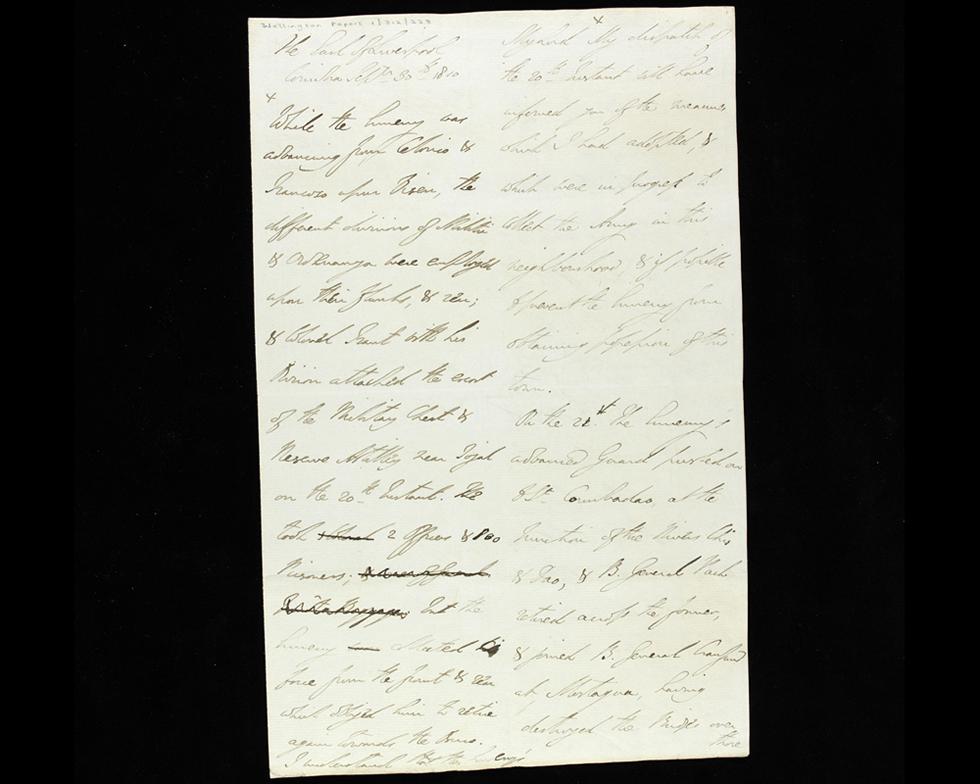 Wellington Papers 1/312/229
The Earl of Liverpool
Coimbra Septr 30th 1810
x
While the Enemy was
advancing from Celorico &
Trancoso upon Viseu, the
different divisions of Militia
& Ordenanza were employed
upon their flanks, & rear;
& Colonel Trant with his
Division attacked the escort
of the Military Chest &
Reserve Artillery near Tojal
on the 20th Instant. He
took 2 Officers & 100
Prisoners; But the
Enemy collected
force from the front & rear
which obliged him to retire
again towards the Douro.
I understand that the Enemy's
x
My Lord My dispatch of
the 20th Instant will have
informed you of the measures
which I had adopted, &
which were in progress to
collect the Army in this
neighbourhood, & if possible
to prevent the Enemy from
obtaining possession of this
town.
On the 21st the Enemy's
advanced Guard pushed on
to St Combadao, at the
Junction of the Rivers Criz
& Dao, & B. General Pack
retired across the former,
& joined B. General Craufurd
at Mortagoa, having
destroyed the Bridges over
those